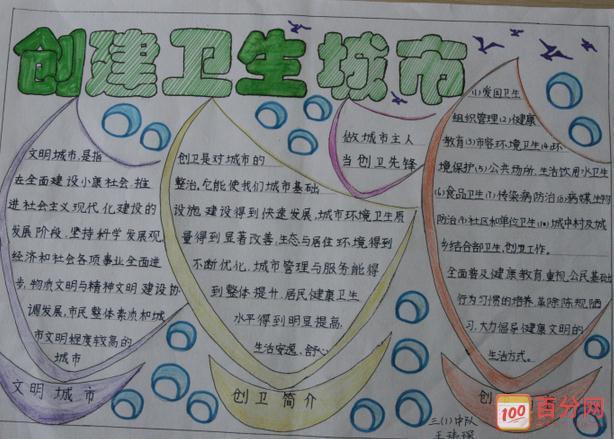 创建卫生城市
文明城市,是指
在全面建设小康社会,推
进社会主义现代化建设的
发展阶段,坚持科学发展观,
经济和社会各项事业全面进
步,物质文明与精神文明建设协
调发展,市民整体素质和城
市文明程度较高的
城市
文明城市
创卫是对城市的
整治,它能使我们城市基础
设施建设得到快速发展,城市环境卫生质
量得到显著改善,生态与居住环境得到
不断优化,城市管理与服务能得
到整体提升,居民健康卫生
水平得到明显提高,
生活安逸、舒心
创卫简介
做城市主人
当创卫先锋
(1)爱国卫生
组织管理(2)健康
教育(3)市容环境卫生(4)环
境保护(5)公共场所,生活饮用水卫生
(6)食品卫生(7)传染病防治(8)病媒生物
防治(9)社区和单位卫生(10)城中村及城
乡结合部卫生,创卫工作。
全面普及健康教育,重视公民基础
行为习惯的培养,革除陈规陋
习,大力倡导健康文明的
生活方式。
创
三(1)中队
100
百分网